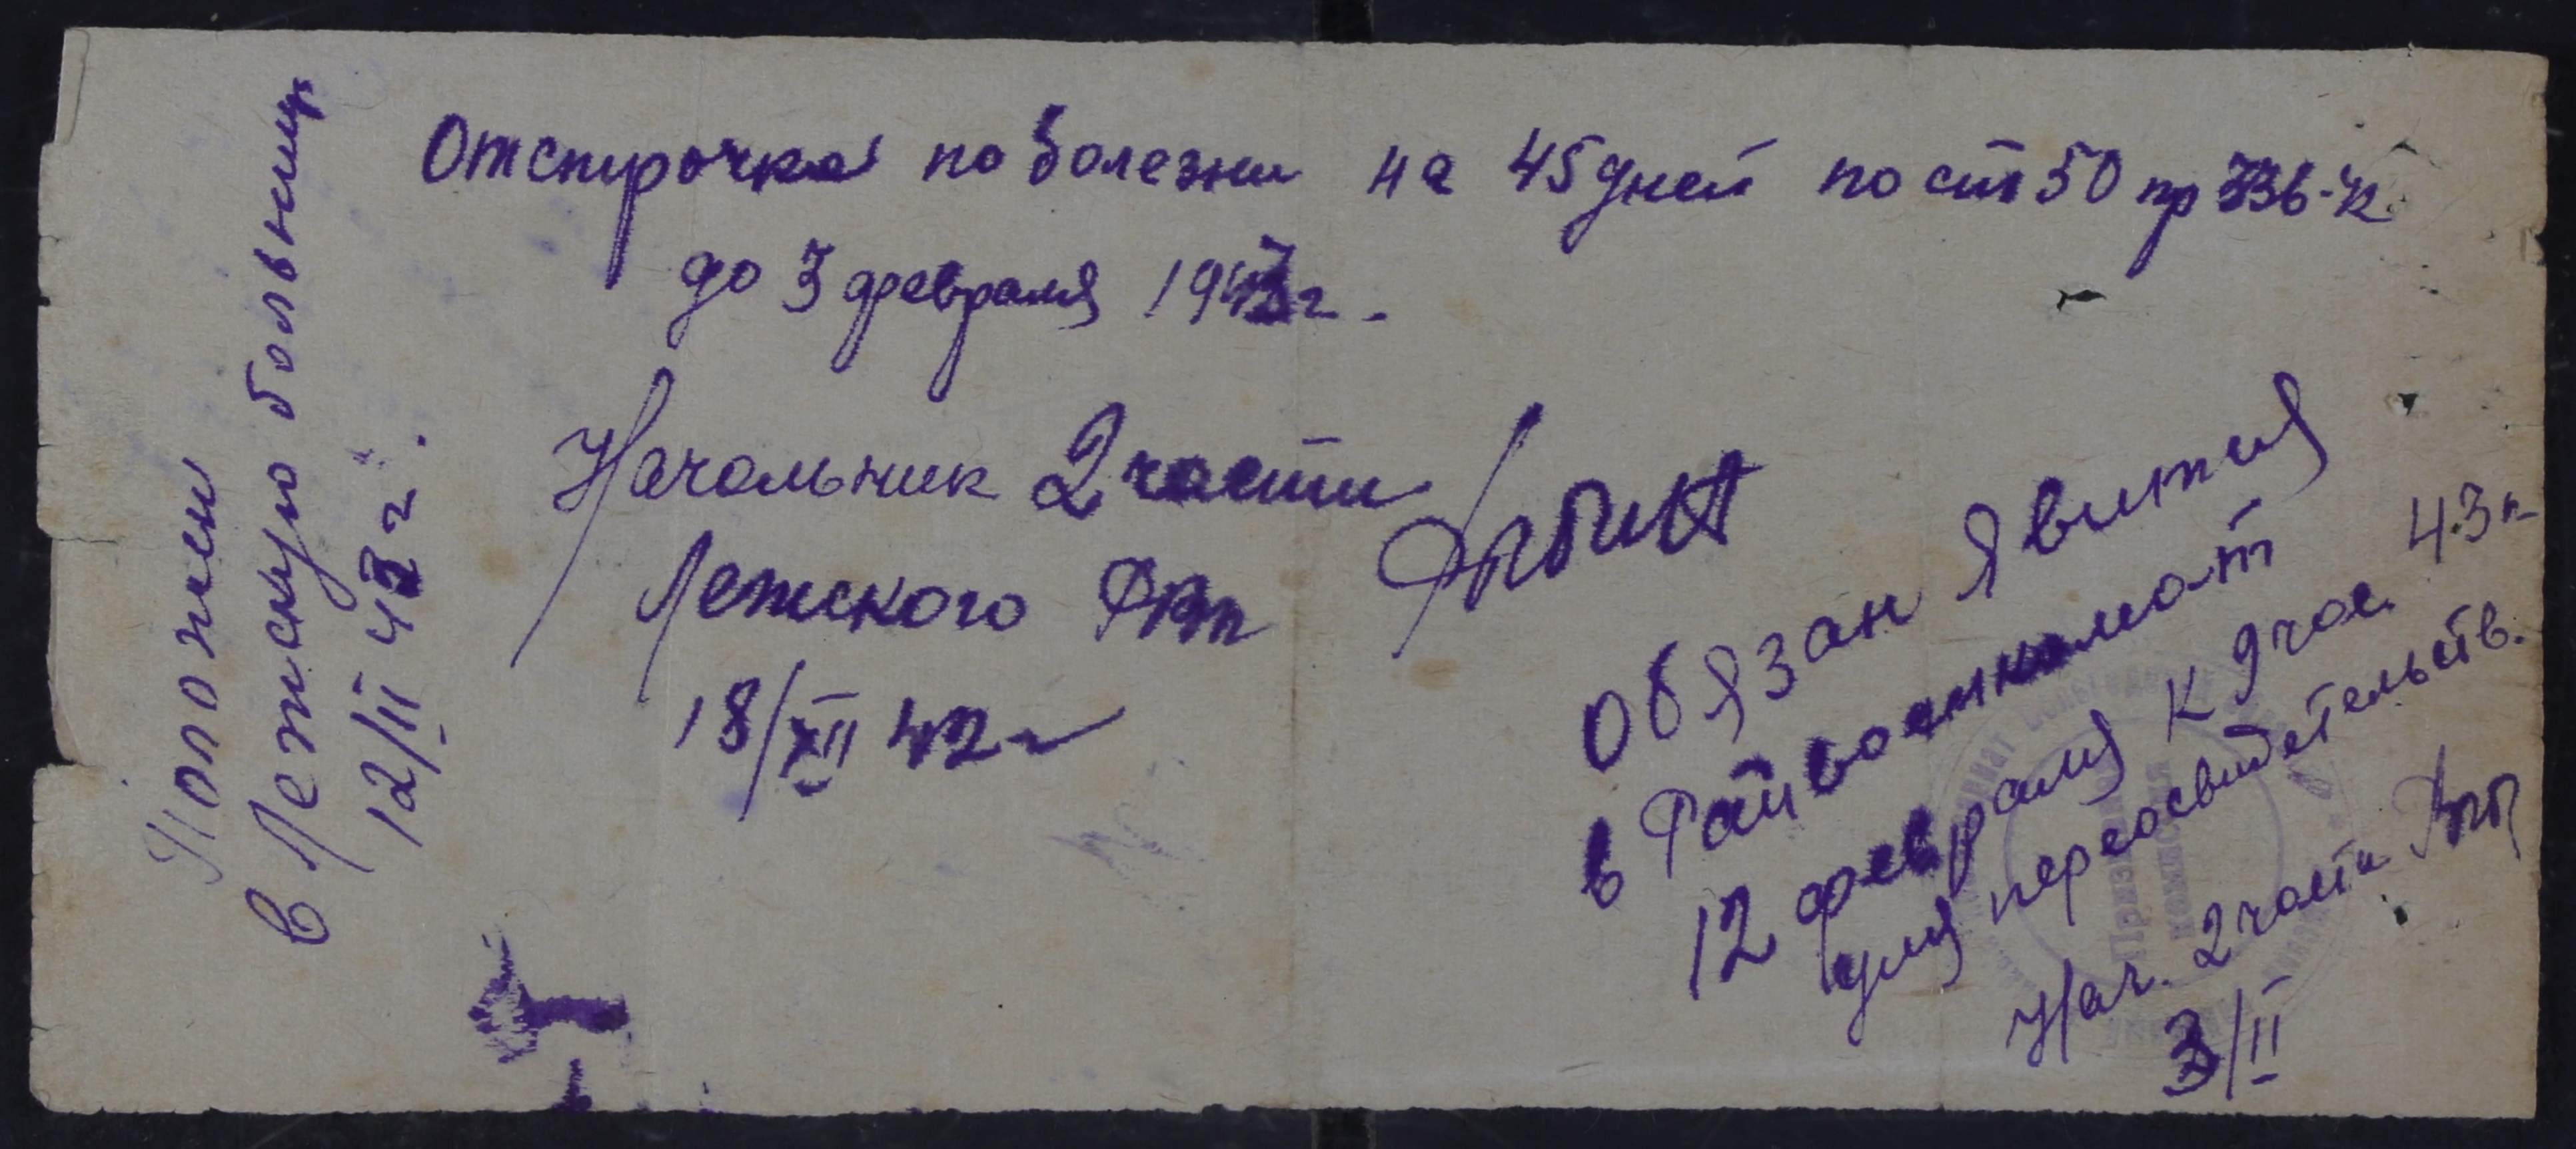 Отстрочка по болезни на 45 дней по ст 50 пр 336-42
до 3 февраля 1943 г.
Начальник 2 части
Лежского РВК
18/XII 42 г
Положен
в Лежскую больницу
12/II 43 г.
Обязан явится
в Райвоенкомат
12 февраля к 9 час. 43 г.
для переосвидетельств.
Нач. 2 части
3/II